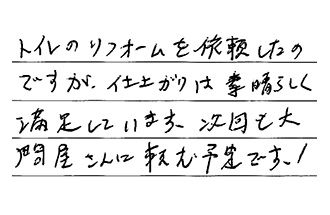 トイレのリフォームを依頼したの
ですが、仕上がりは素晴らしく
満足しています、次回も大
問屋さんに頼む予定です、!